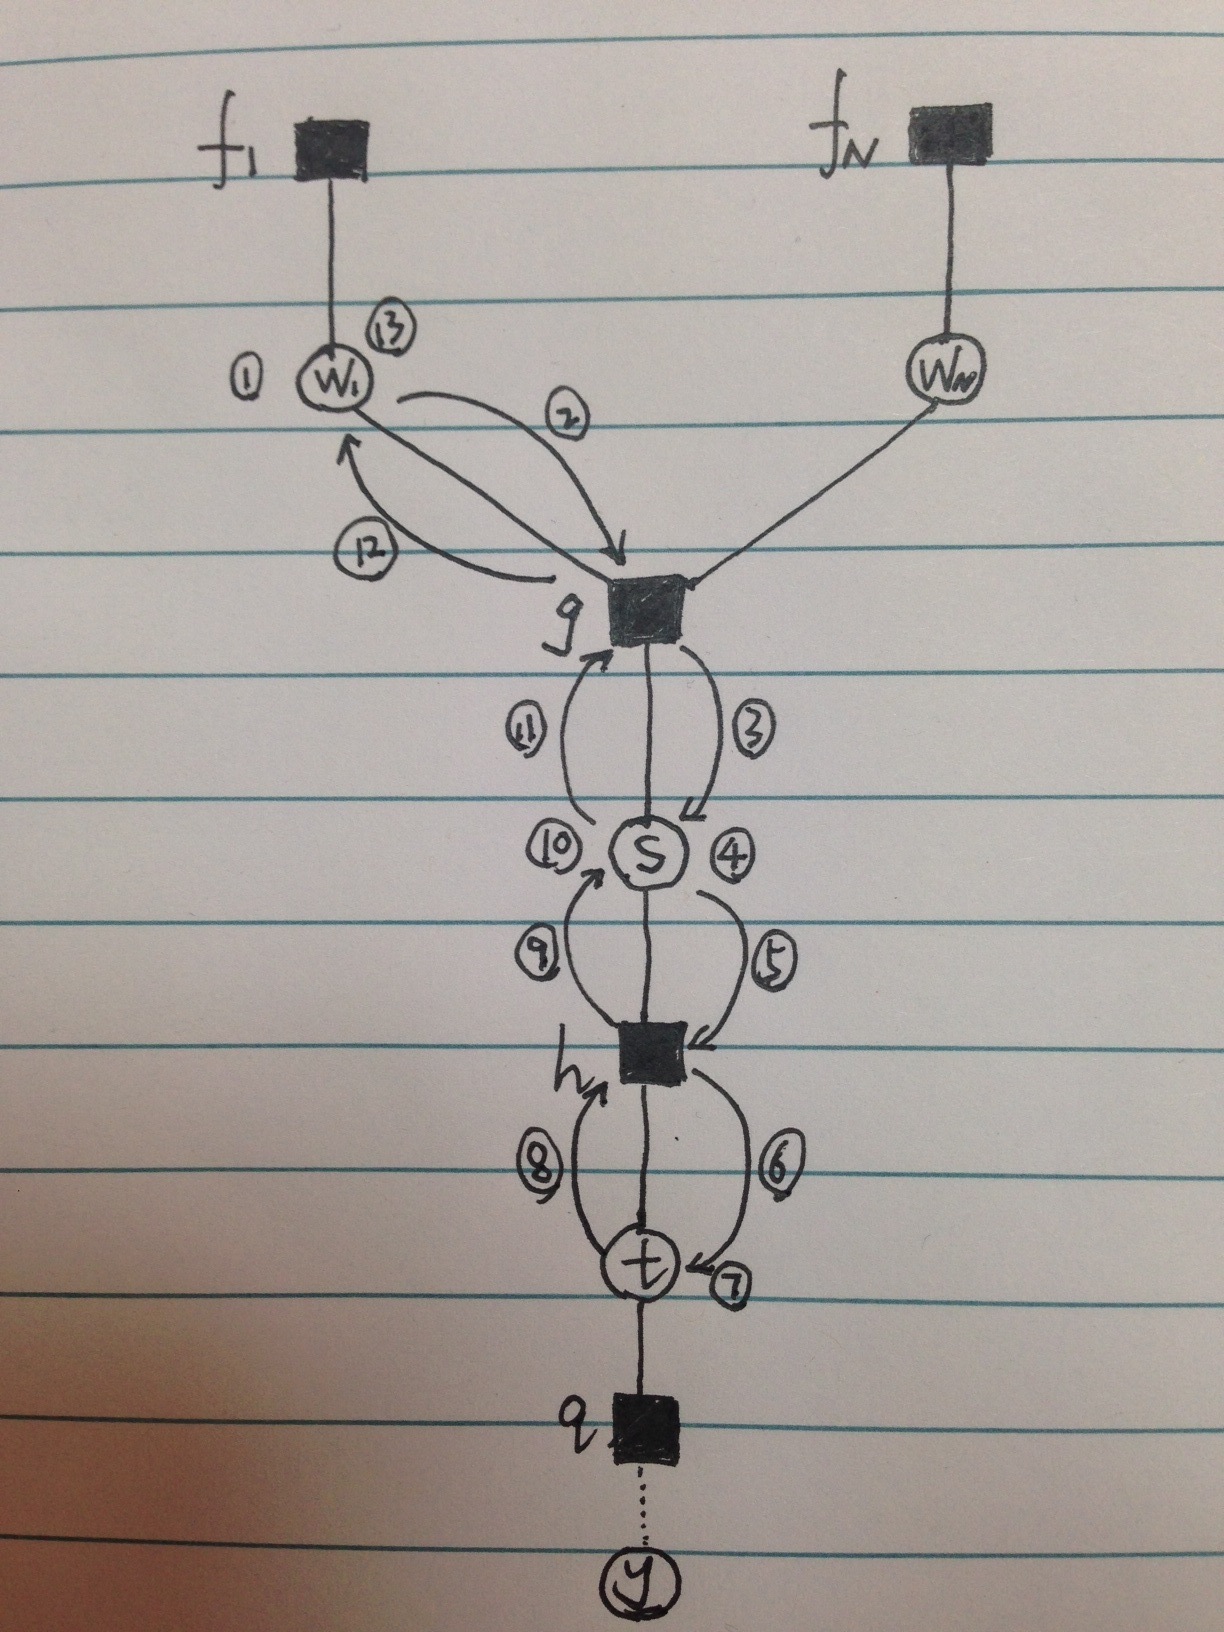 f1 fN
⑬
① W1 WN
②
⑫
g
⑪ ③
⑩ S ④
⑨ ⑤
h
⑧ ⑥
t ⑦
q
y